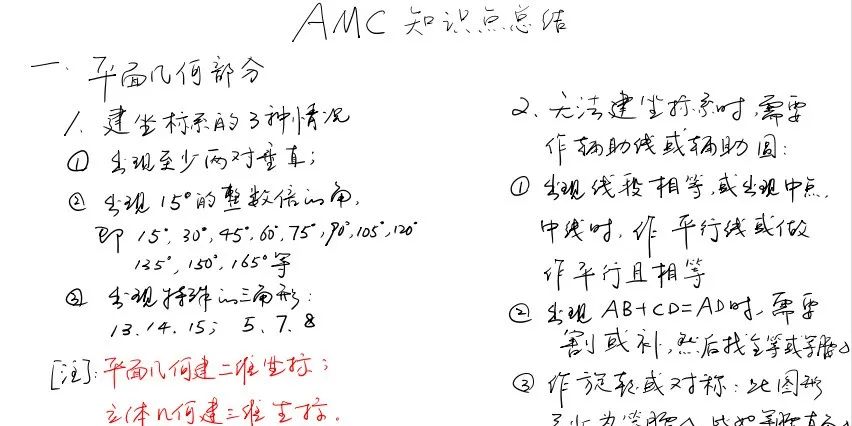 AMC 知识点总结
一. 平面几何部分
1. 建坐标系的3种情况
① 出现至少两对垂直;
② 出现15°的整数倍的角,
即 15°,30°,45°,60°,75°,90°,105°,120°
135°,150°,165°等
③ 出现特殊的三角形:
13.14.15; 5、7、8
[注]:平面几何建二维坐标;
立体几何建三维坐标.
2、无法建坐标系时,需要
作辅助线或辅助圆:
① 出现线段相等,或出现中点,
中线时,作 平行线或做
作平行且相等
② 出现 AB+CD=AD时,需要
割或补,然后找全等或等腰△
③ 作旋转或对称:此图形